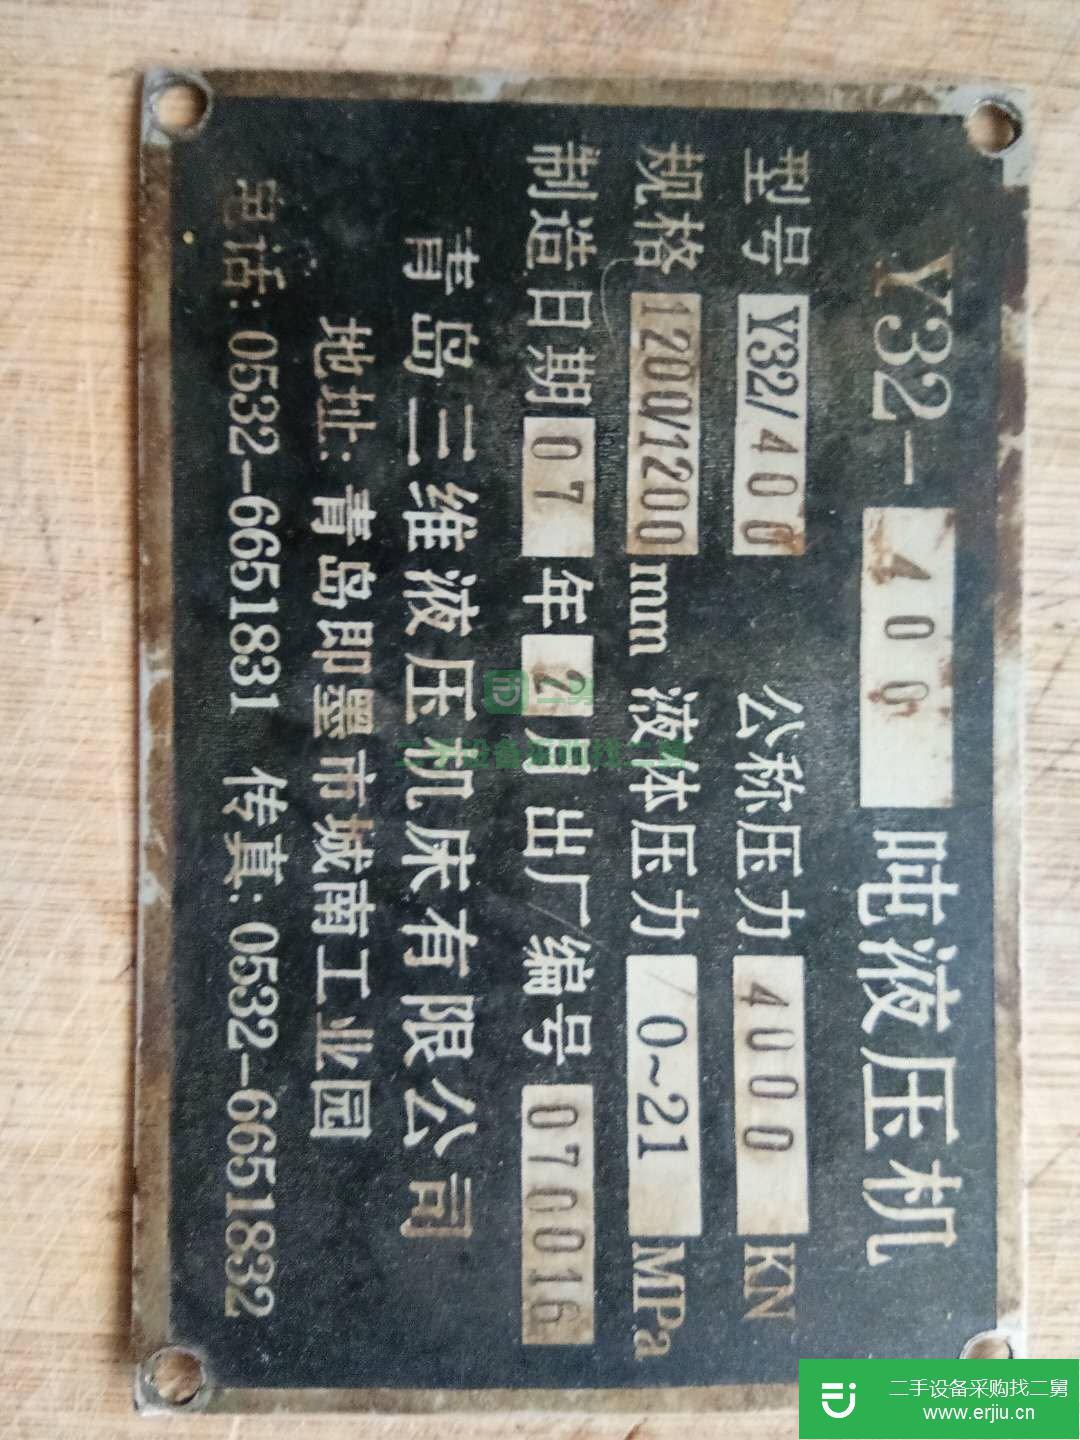 Y32-400吨液压机
型号 Y32/400 公称压力 4000 KN
规格 1200/1200 mm 液体压力 0~21 MPa
制造日期 07 年 2 月 出厂编号 070016
青岛三维液压机床有限公司
地址: 青岛即墨市城南工业园
电话: 0532-6651831 传真: 0532-6651832
二舅
二手设备采购找二舅
二手设备采购找二舅
www.erjiu.cn